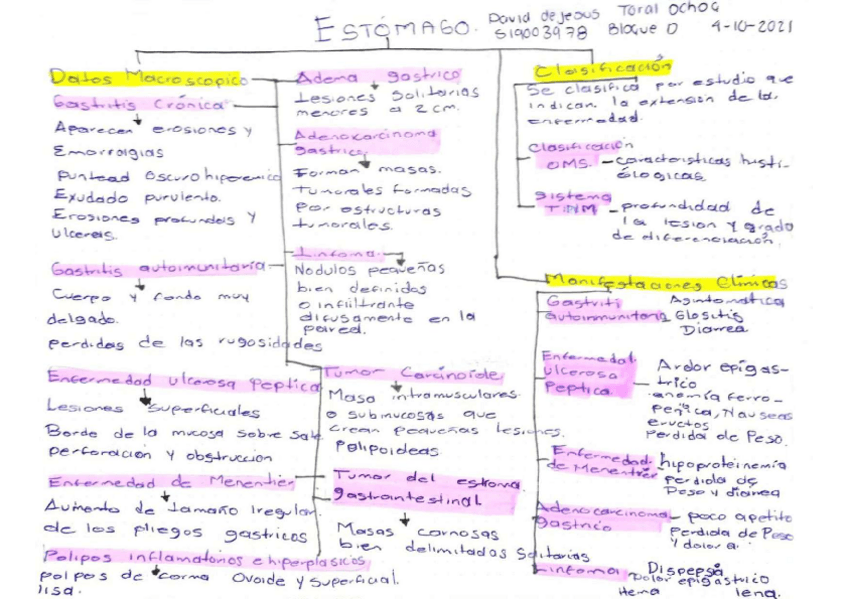 ESTÓMAGO.
David de Jesus Toral Ochoa
S19003978 Bloque D 4-10-2021
Datos Macroscopico
Gastritis Crónica
Aparecen erosiones y
Emorralgias
puntead oscuro hiperemico
Exudado purulento.
Erosiones profundas y
ulceras.
Gastritis autoinmunitaria
Cuerpo y fondo muy
delgado.
perdidas de las rugosidades
Enfermedad ulcerosa peptica
Lesiones superficiales
Borde de la mucosa sobre sale
perforación y obstruccion
Enfermedad de Menentrier
Aumento de tamaño irregular
de los pliegos gastricos
Polipos inflamatorios e hiperplasicos
polpos de forma ovoide y superficial.
lisa.
Adema gastrico
Lesiones solitarias
menores a 2 cm.
Adenocarcinoma
gastrico
Forman masas.
tumorales formadas
por estructuras
tumorales.
Linfoma
Nodulos pequeñas
bien definidos
o infiltrante
difusamente en la
pared.
Tumor Carcinoide
Masa intramusculares
o submucosas que
crean pequeñas lesiones.
Polipoideas
Tumor del estroma
gastrointestinal
Masas carnosas
bien delimitadas solitarias
Clasificación
Se clasifica por estudio que
indican la extension de la
enfermedad.
Clasificación
OMS. - caracteristicas histi-
ólogicas.
Sistema
TNM - profundidad de
la lesion y grado
de diferenciación.
Manifestaciones Clínicas
Gastriti Asintomatica
autoinmunitaria Glositis
Diarrea
Enfermedad
ulcerosa
Peptica
Ardor epigas-
trico
anemia ferro-
penica, Nauseas
eructos
Perdida de Peso.
Enfermedad hipoproteinemia
de Menentrier perdida de
Peso y diarrea
Adenocarcinoma - poco apetito
gastrico Perdida de Peso
y dolor a.
Linfoma Dispepsia
Dolor epigastrico
Hema lena.